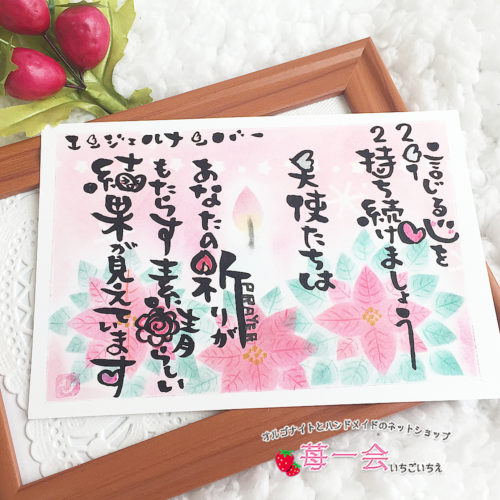 エンジェルナンバー
229 信じる心を
持ち続けましょう
天使たちは
あなたの祈りが
PRAYER
もたらす素晴らしい
結果が見えています
オルゴナイトとハンドメイドのネットショップ
苺一会 いちごいちえ